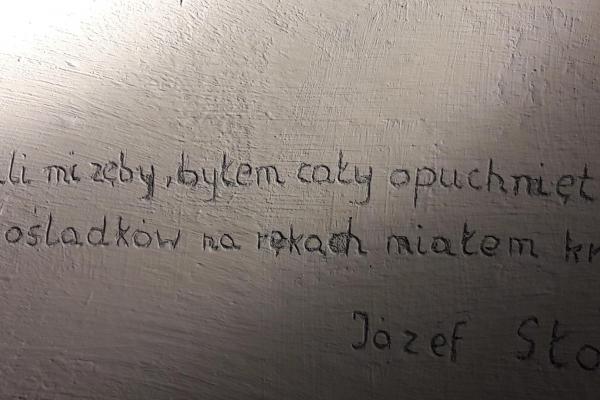 li mi zęby, byłem cały opuchnięt
ośladków na rękach miałem kr
Józef Sto